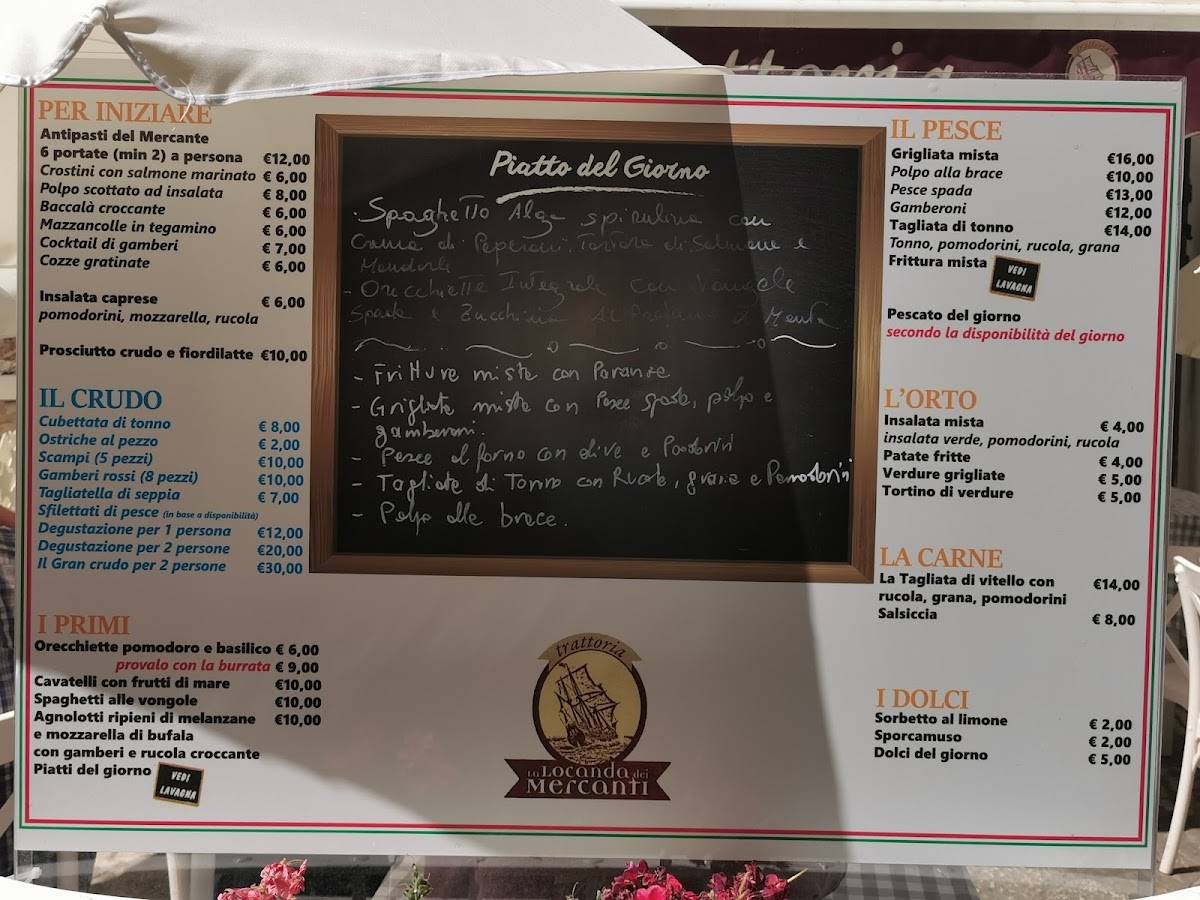 PER INIZIARE
Antipasti del Mercante
6 portate (min 2) a persona €12,00
Crostini con salmone marinato € 6,00
Polpo scottato ad insalata € 8,00
Baccalà croccante € 6,00
Mazzancolle in tegamino € 6,00
Cocktail di gamberi € 7,00
Cozze gratinate € 6,00
Insalata caprese € 6,00
pomodorini, mozzarella, rucola
Prosciutto crudo e fiordilatte €10,00
IL CRUDO
Cubettata di tonno € 8,00
Ostriche al pezzo € 2,00
Scampi (5 pezzi) €10,00
Gamberi rossi (8 pezzi) €10,00
Tagliatella di seppia € 7,00
Sfilettati di pesce (in base a disponibilità)
Degustazione per 1 persona €12,00
Degustazione per 2 persone €20,00
Il Gran crudo per 2 persone €30,00
I PRIMI
Orecchiette pomodoro e basilico € 6,00
provalo con la burrata € 9,00
Cavatelli con frutti di mare €10,00
Spaghetti alle vongole €10,00
Agnolotti ripieni di melanzane €10,00
e mozzarella di bufala
con gamberi e rucola croccante
Piatti del giorno VEDI
LAVAGNA
Piatto del Giorno
. Spaghetto Alga spirulina con
Crema di Peperoni, Tartare di Salmone e
Mandorle
- Orecchiette Integrale con Vongole
Spada e Zucchina Al Profumo di Menta
- Fritture miste con Paranze
- Grigliate miste con Pesce spada, polpo e
gamberoni.
- Pesce al forno con olive e Pomodorini
- Tagliate di Tonno con Rucola, grana e Pomodorini
- Polpo alle brace.
trattoria
La Locanda dei
Mercanti
IL PESCE
Grigliata mista €16,00
Polpo alla brace €10,00
Pesce spada €13,00
Gamberoni €12,00
Tagliata di tonno €14,00
Tonno, pomodorini, rucola, grana
Frittura mista VEDI
LAVAGNA
Pescato del giorno
secondo la disponibilità del giorno
L'ORTO
Insalata mista € 4,00
insalata verde, pomodorini, rucola
Patate fritte € 4,00
Verdure grigliate € 5,00
Tortino di verdure € 5,00
LA CARNE
La Tagliata di vitello con €14,00
rucola, grana, pomodorini
Salsiccia € 8,00
I DOLCI
Sorbetto al limone € 2,00
Sporcamuso € 2,00
Dolci del giorno € 5,00